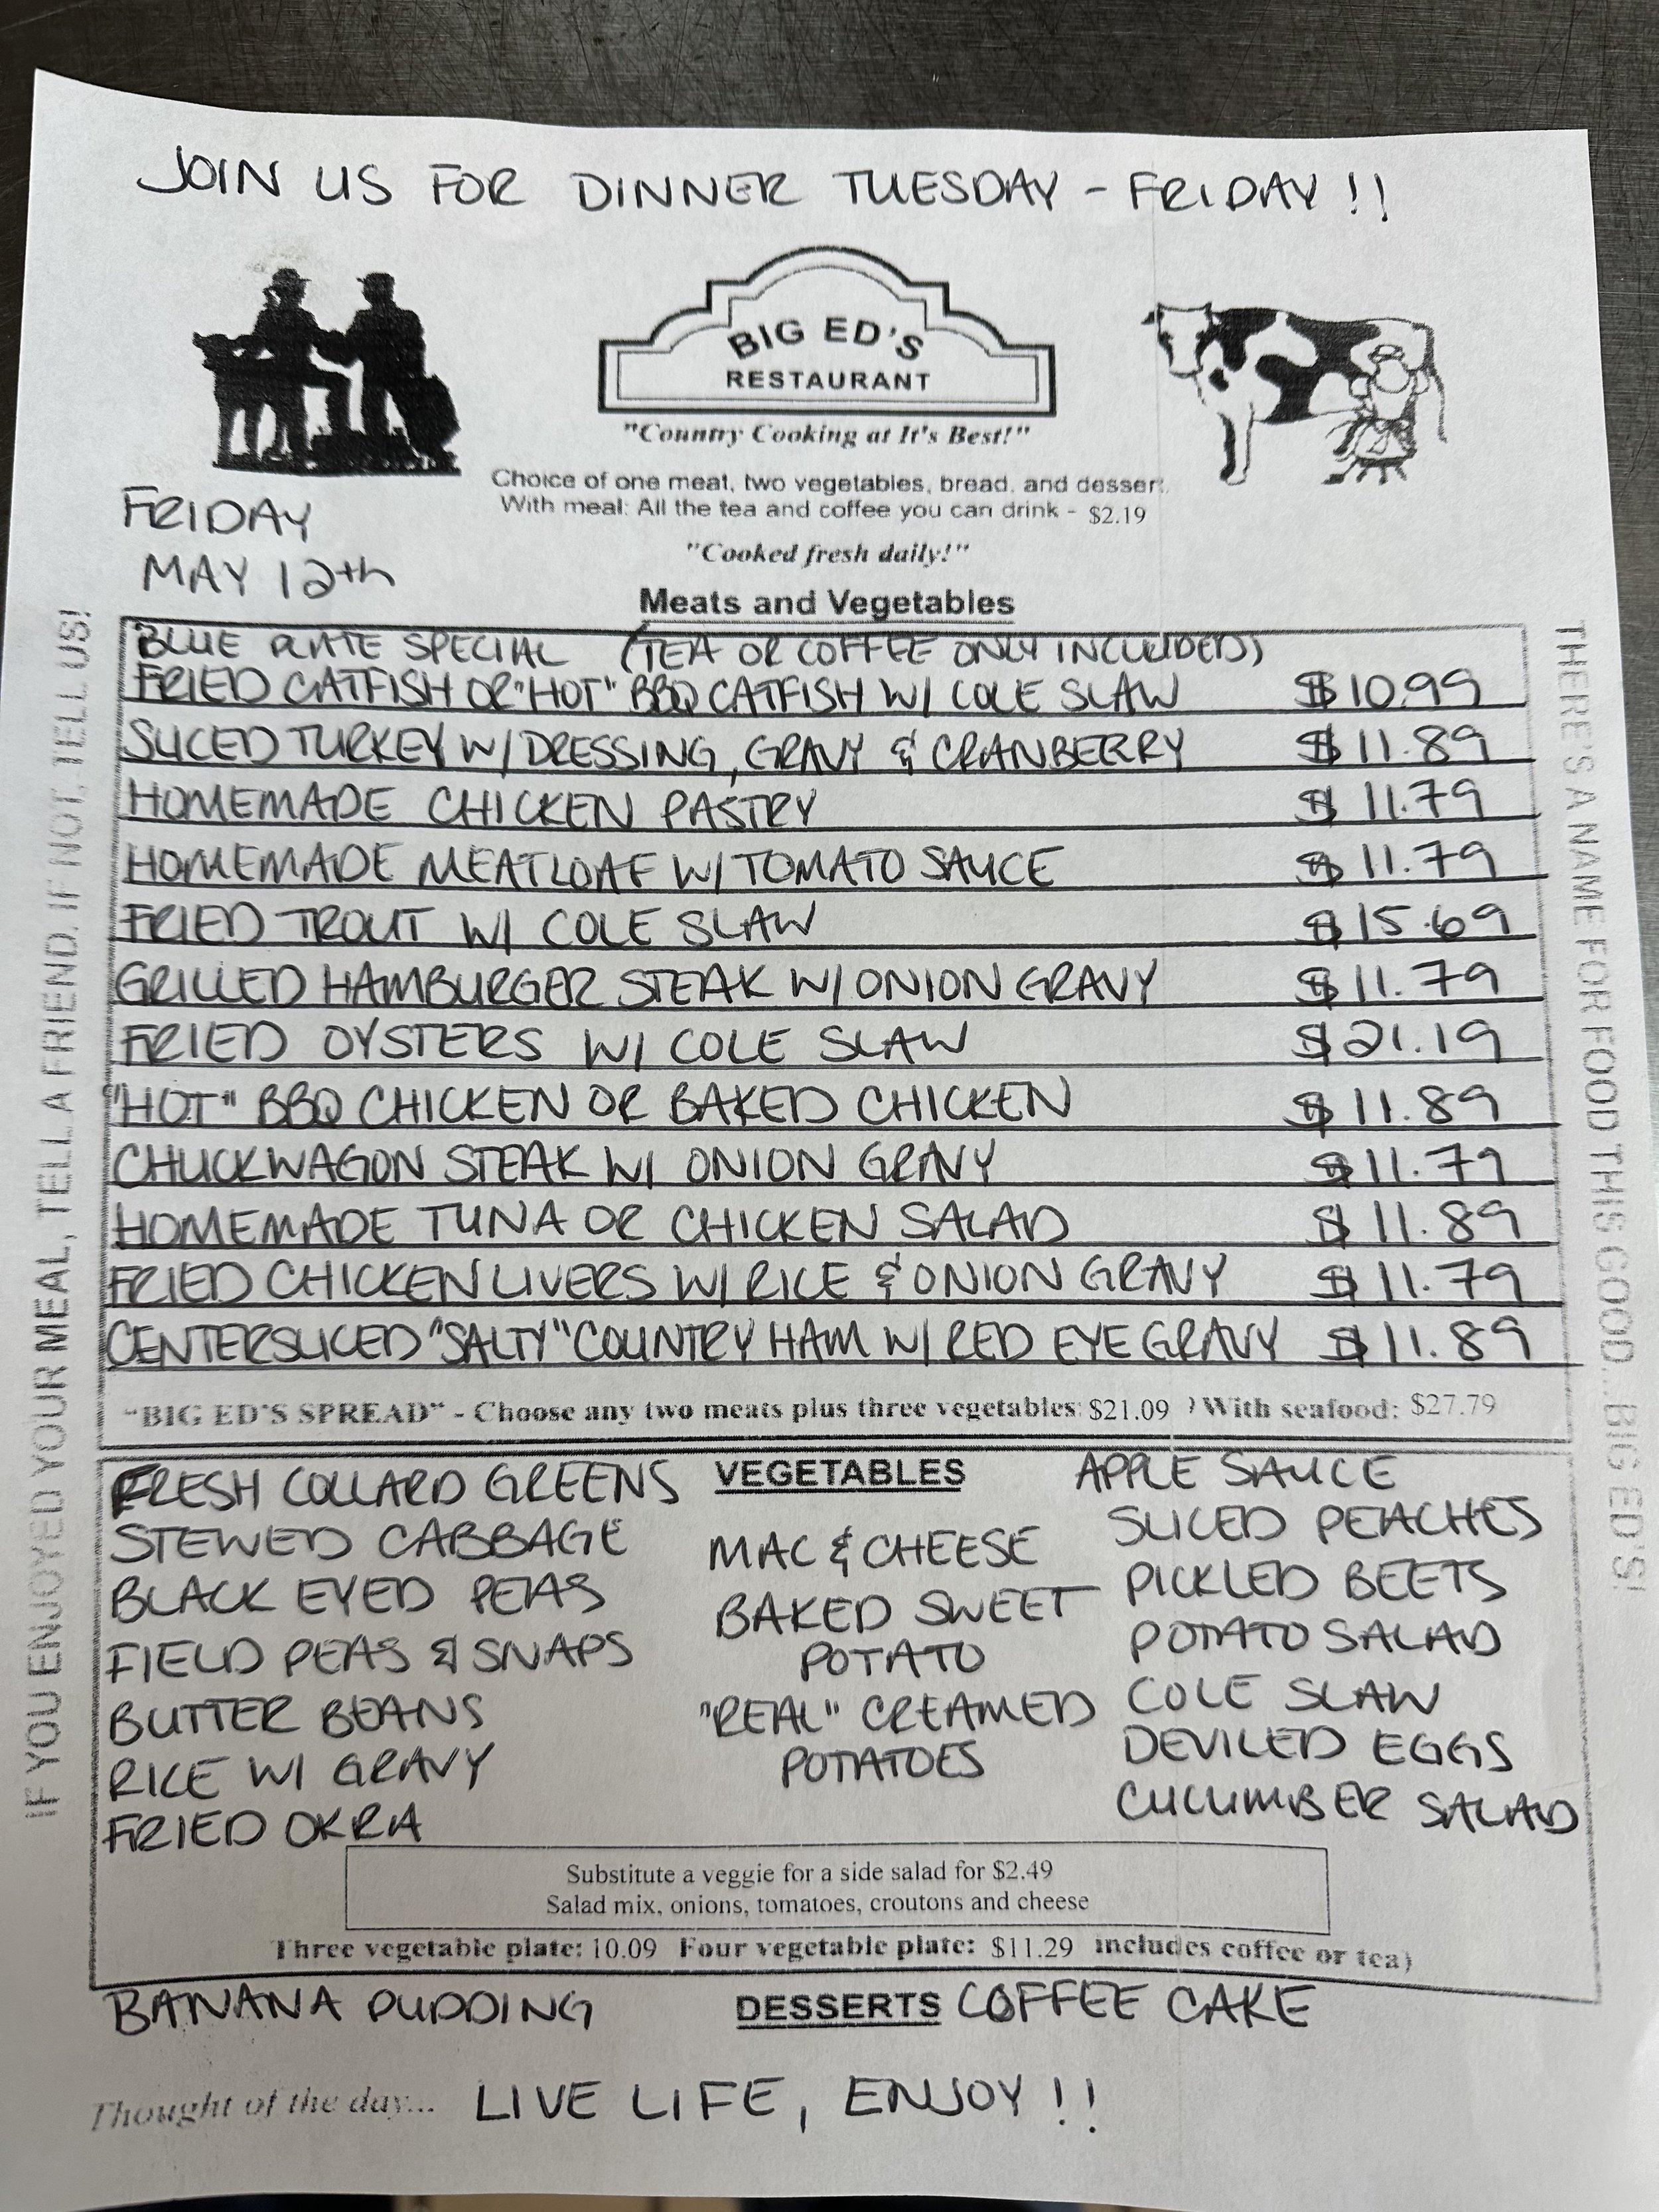 JOIN US FOR DINNER TUESDAY - FRIDAY !!
BIG ED'S
RESTAURANT
"Country Cooking at It's Best!"
Choice of one meat, two vegetables, bread, and dessert.
With meal: All the tea and coffee you can drink - $2.19
"Cooked fresh daily!"
FRIDAY
MAY 12th
Meats and Vegetables
BLUE PLATE SPECIAL (TEA OR COFFEE ONLY INCLUDED)
FRIED CATFISH OR "HOT" BBQ CATFISH W/ COLE SLAW $10.99
SLICED TURKEY W/ DRESSING, GRAVY & CRANBERRY $11.89
HOMEMADE CHICKEN PASTRY $11.79
HOMEMADE MEATLOAF W/ TOMATO SAUCE $11.79
FRIED TROUT W/ COLE SLAW $15.69
GRILLED HAMBURGER STEAK W/ ONION GRAVY $11.79
FRIED OYSTERS W/ COLE SLAW $21.19
"HOT" BBQ CHICKEN OR BAKED CHICKEN $11.89
CHUCKWAGON STEAK W/ ONION GRAVY $11.79
HOMEMADE TUNA OR CHICKEN SALAD $11.89
FRIED CHICKEN LIVERS W/ RICE & ONION GRAVY $11.79
CENTERSLICED "SALTY" COUNTRY HAM W/ RED EYE GRAVY $11.89
"BIG ED'S SPREAD" - Choose any two meats plus three vegetables: $21.09 ) With seafood: $27.79
VEGETABLES
FRESH COLLARD GREENS
STEWED CABBAGE
BLACK EYED PEAS
FIELD PEAS & SNAPS
BUTTER BEANS
RICE W/ GRAVY
FRIED OKRA
MAC & CHEESE
BAKED SWEET
POTATO
"REAL" CREAMED
POTATOES
APPLE SAUCE
SLICED PEACHES
PICKLED BEETS
POTATO SALAD
COLE SLAW
DEVILED EGGS
CUCUMBER SALAD
Substitute a veggie for a side salad for $2.49
Salad mix, onions, tomatoes, croutons and cheese
Three vegetable plate: 10.09 Four vegetable plate: $11.29 includes coffee or tea)
BANANA PUDDING DESSERTS COFFEE CAKE
Thought of the day... LIVE LIFE, ENJOY !!
IF YOU ENJOYED YOUR MEAL, TELL A FRIEND. IF NOT, TELL US!
THERE'S A NAME FOR FOOD THIS GOOD... BIG ED'S!